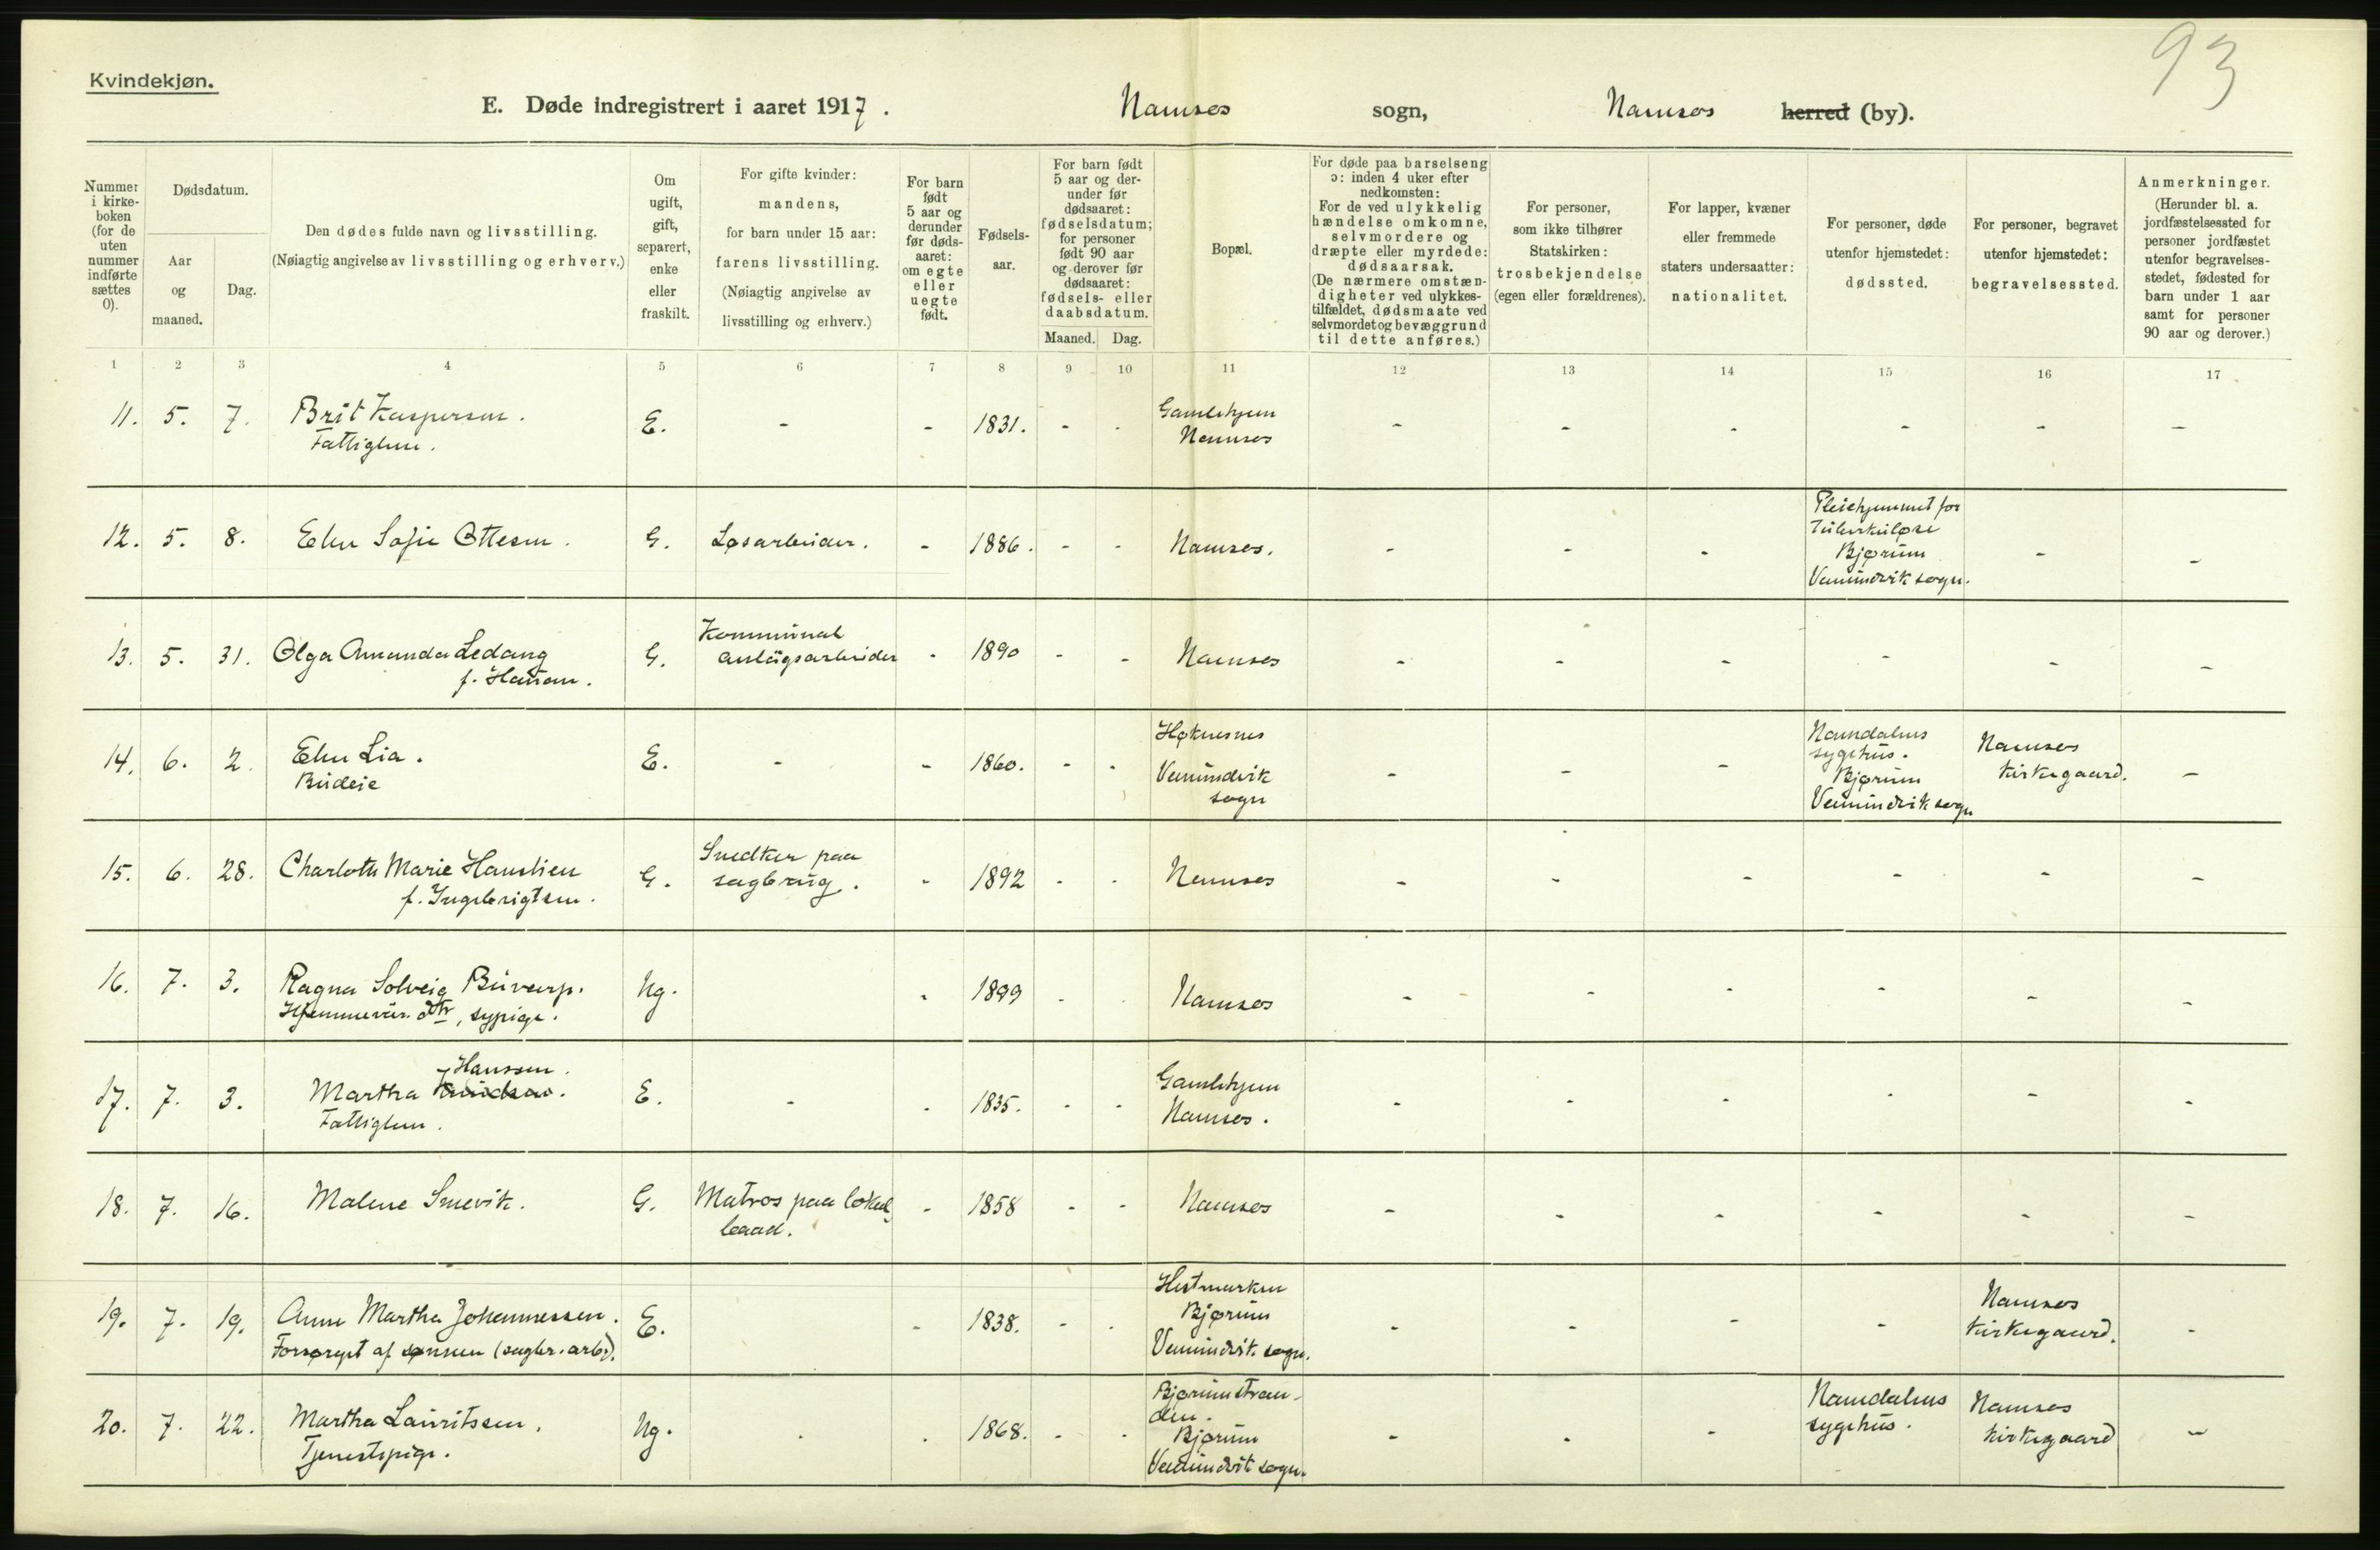 93
Kvindekjøn.
E. Døde indregistrert i aaret 1917. Namsos sogn, Namsos herred (by).
Nummer i kirke-boken (for de uten nummer indførte sættes 0).
Dødsdatum.
Aar og maaned.
Dag.
Den dødes fulde navn og livsstilling.
(Nøiagtig angivelse av livsstilling og erhverv.)
Om ugift, gift, separert, enke eller fraskilt.
For gifte kvinder: mandens, for barn under 15 aar: farens livsstilling. (Nøiagtig angivelse av livsstilling og erhverv.)
For barn født 5 aar og derunder før døds-aaret: om egte eller uegte født.
Fødsels-aar.
For barn født 5 aar og der-under før dødsaaret: fødselsdatum; for personer født 90 aar og derover før dødsaaret: fødsels- eller daabsdatum.
Maaned. Dag.
Bopæl.
For døde paa barselseng ɔ: inden 4 uker efter nedkomsten: For de ved ulykkelig hændelse omkomne, selvmordere og dræpte eller myrdede: dødsaarsak. (De nærmere omstæn-digheter ved ulykkes-tilfældet, dødsmaate ved selvmordet og bevæggrund til dette anføres.)
For personer, som ikke tilhører Statskirken: trosbekjendelse (egen eller forældrenes).
For lapper, kvæner eller fremmede staters undersaatter: nationalitet.
For personer, døde utenfor hjemstedet: dødssted.
For personer, begravet utenfor hjemstedet: begravelsessted.
Anmerkninger. (Herunder bl. a. jordfæstelsessted for personer jordfæstet utenfor begravelses-stedet, fødested for barn under 1 aar samt for personer 90 aar og derover.)
1 2 3 4 5 6 7 8 9 10 11 12 13 14 15 16 17
11. 5. 7. Brit Kaspersen. E. - - 1831. - - Gamlehjem - - - - - -
Fattiglem. Namsos
12. 5. 8. Elen Sofie Ottesen. G. Løsarbeider. - 1886. - - Namsos. - - - Pleiehjemmet for - -
Tuberkuløse
Bjørum
Vemundvik sogn.
13. 5. 31. Olga Amanda Ledang G. Kommunal - 1890 - - Namsos - - - - - -
f. Hanson. anlægsarbeider
14. 6. 2. Elen Lia. E. - - 1860. - - Høknesnes - - - Namdalens Namsos -
Budeie Vemundvik sygehus. kirkegaard.
sogn Bjørum
Vemundvik sogn
15. 6. 28. Charlotte Marie Hanslien G. Snedker paa - 1892 - - Namsos - - - - - -
f. Ingebrigtsen. sagbrug.
16. 7. 3. Ragna Solveig Buvarp. Ug. - 1899 - - Namsos - - - - - -
dtr, sypige.
17. 7. 3. Martha Hanssen. E. - - 1835. - - Gamlehjem - - - - - -
Fattiglem. Namsos.
18. 7. 16. Malene Smevik. G. Matros paa lokal- - 1858 - - Namsos - - - - - -
baad.
19. 7. 19. Anne Martha Johannessen. E. - 1838. - - Hestmarken - - - - Namsos -
Forsørget af sønnen (sagbr. arb.). Bjørum kirkegaard.
Vemundvik sogn.
20. 7. 22. Martha Lauritssen. Ug. - - 1868. - - Bjørumstran- - - - Namdalens Namsos -
Tjenestepige. den. sygehus. kirkegaard
Bjørum
Vemundvik sogn.